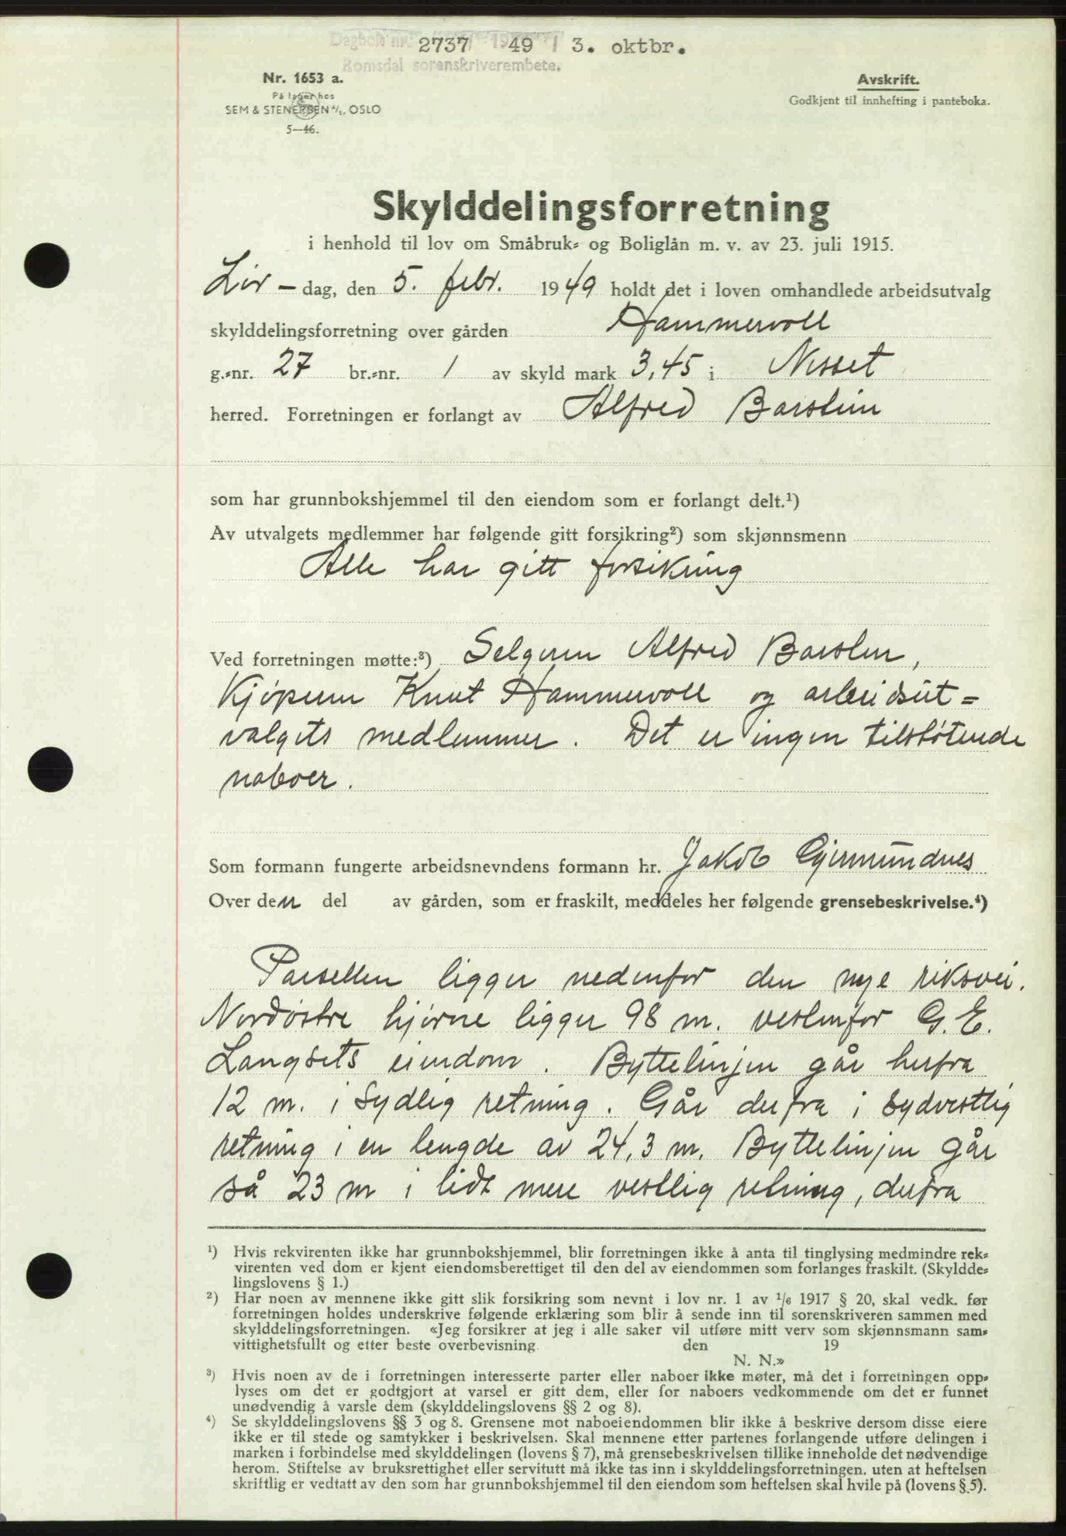 Dagbok nr. 2737 1949 / 3. oktbr.
Romsdal sorenskriverembete.
Nr. 1653 a.
På lager hos
SEM & STENERSEN A/S, OSLO
5—46.
Avskrift.
Godkjent til innhefting i panteboka.
Skylddelingsforretning
i henhold til lov om Småbruk- og Boliglån m. v. av 23. juli 1915.
Lør – dag, den 5. febr. 1949 holdt det i loven omhandlede arbeidsutvalg
skylddelingsforretning over gården Hammervoll
g.-nr. 27 br.-nr. 1 av skyld mark 3,45 i Nesset
herred. Forretningen er forlangt av Alfred Barslein
som har grunnbokshjemmel til den eiendom som er forlangt delt.¹)
Av utvalgets medlemmer har følgende gitt forsikring²) som skjønnsmenn
Alle har gitt forsikring
Ved forretningen møtte:³) Selgeren Alfred Barslen,
Kjøperen Knut Hammervoll og arbeidsut=
valgets medlemmer. Det er ingen tilstøtende
naboer.
Som formann fungerte arbeidsnevndens formann hr. Jakob Gjermundnes
Over den del av gården, som er fraskilt, meddeles her følgende grensebeskrivelse.⁴)
Parsellen ligger nedenfor den nye riksvei.
Nordøstre hjørne ligger 98 m. vestenfor G. E.
Langsets eiendom. Byttelinjen går herfra
12 m. i sydlig retning. Går derfra i sydvestlig
retning i en lengde av 24,3 m. Byttelinjen går
så 23 m i lidt mere vestlig retning, derfra
¹) Hvis rekvirenten ikke har grunnbokshjemmel, blir forretningen ikke å anta til tinglysing medmindre rek-
virenten ved dom er kjent eiendomsberettiget til den del av eiendommen som forlanges fraskilt. (Skyldde-
lingslovens § 1.)
²) Har noen av mennene ikke gitt slik forsikring som nevnt i lov nr. 1 av 1/6 1917 § 20, skal vedk. før
forretningen holdes underskrive følgende erklæring som blir å sende inn til sorenskriveren sammen med
skylddelingsforretningen. «Jeg forsikrer at jeg i alle saker vil utføre mitt verv som skjønnsmann sam-
vittighetsfullt og etter beste overbevisning den 19
N. N.»
³) Hvis noen av de i forretningen interesserte parter eller naboer ikke møter, må det i forretningen opp-
lyses om det er godtgjort at varsel er gitt dem, eller for naboers vedkommende om det er funnet
unødvendig å varsle dem (skylddelingslovens §§ 2 og 8).
⁴) Se skylddelingslovens §§ 3 og 8. Grensene mot naboeiendommen blir ikke å beskrive dersom disse eiere
ikke er til stede og samtykker i beskrivelsen. Skal mennene etter partenes forlangende utføre delingen i
marken i forbindelse med skylddelingen (lovens § 7), må grensebeskrivelsen tillike inneholde det nødvendige
herom. Stiftelse av bruksrettighet eller servitutt må ikke tas inn i skylddelingsforretningen, uten at heftelsen
skriftlig er vedtatt av den som har grunnbokshjemmel til den eiendom som heftelsen skal hvile på (lovens § 5).